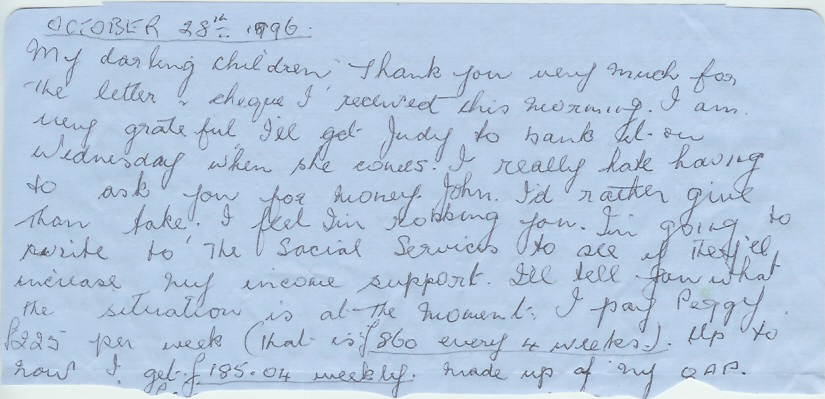 OCTOBER 28th 1996.
My darling children Thank you very much for
the letter & cheque I received this morning. I am
very grateful I'll get Judy to bank it on
Wednesday when she comes. I really hate having
to ask you for money John. I'd rather give
than take. I feel I'm robbing you. I'm going to
write to the Social Services to see if they'll
increase my income support. I'll tell you what
the situation is at the moment: I pay Peggy
£225 per week (that is £860 every 4 weeks.). Up to
now I get £185.04 weekly. made up of my OAP.